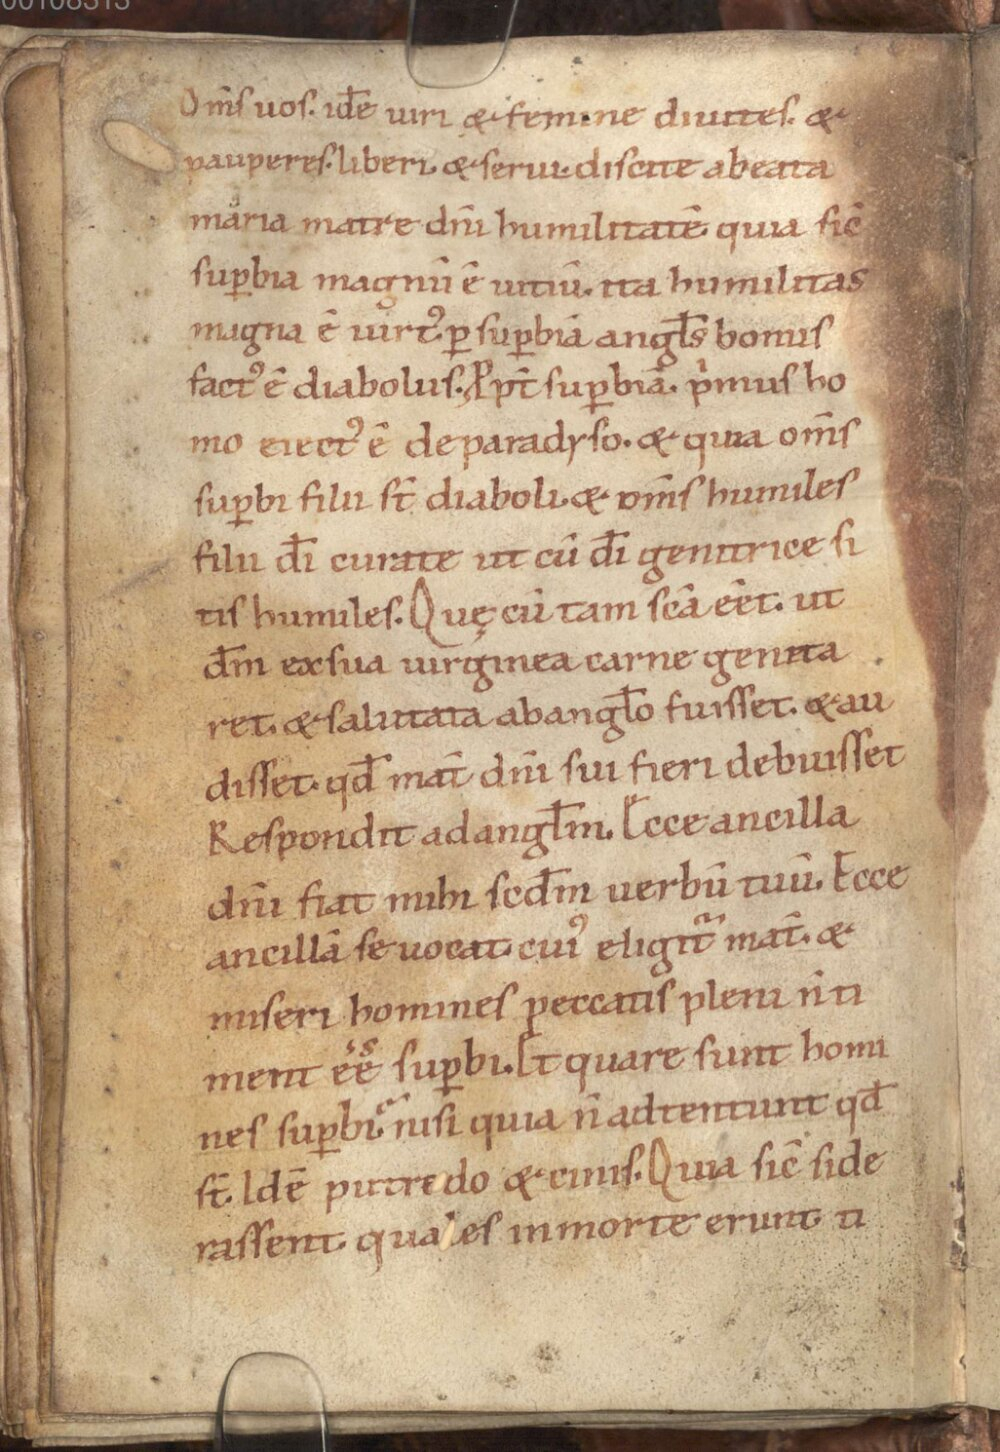 00108313
Om̄s uos. idē uiri & femine diuites. &
pauperes. liberi. & serui. discite abeata
maria matre dn̄i humilitatē quia sic̄
sup̱bia magnū ē uitiū. ita humilitas
magna ē uirtꝰ p̱ sup̱biā angl̄s bonus
factꝰ ē diabolus. Ꝓpt̄ sup̱biā. p̓mus ho
mo eiectꝰ ē deparadyso. & quia om̄s
sup̱bi filii st̄ diaboli. & om̄s humiles
filii dī curate ut cū dī genitrice si
tis humiles. Quę cū tam scā eēt. ut
dm̄ exsua uirginea carne genera
ret. & salutata abanglo̅ fuisset. & au
disset. qd̄ mat̄ dn̄i sui fieri debuisset
Respondit adanglm̄. Ecce ancilla
dn̄i fiat mihi scdm̄ uerbū tuū. Ecce
ancillā se uocat. cuiꝰ eligit᷑ mat̄. &
miseri homines peccatis pleni n̄ ti
ment eē sup̱bi. Et quare sunt homi
nes sup̱bi nisi quia n̄ adtentunt qd̄
st̄. Idē putredo & cinis. Quia sic̄ side
rassent quales inmorte erunt ti